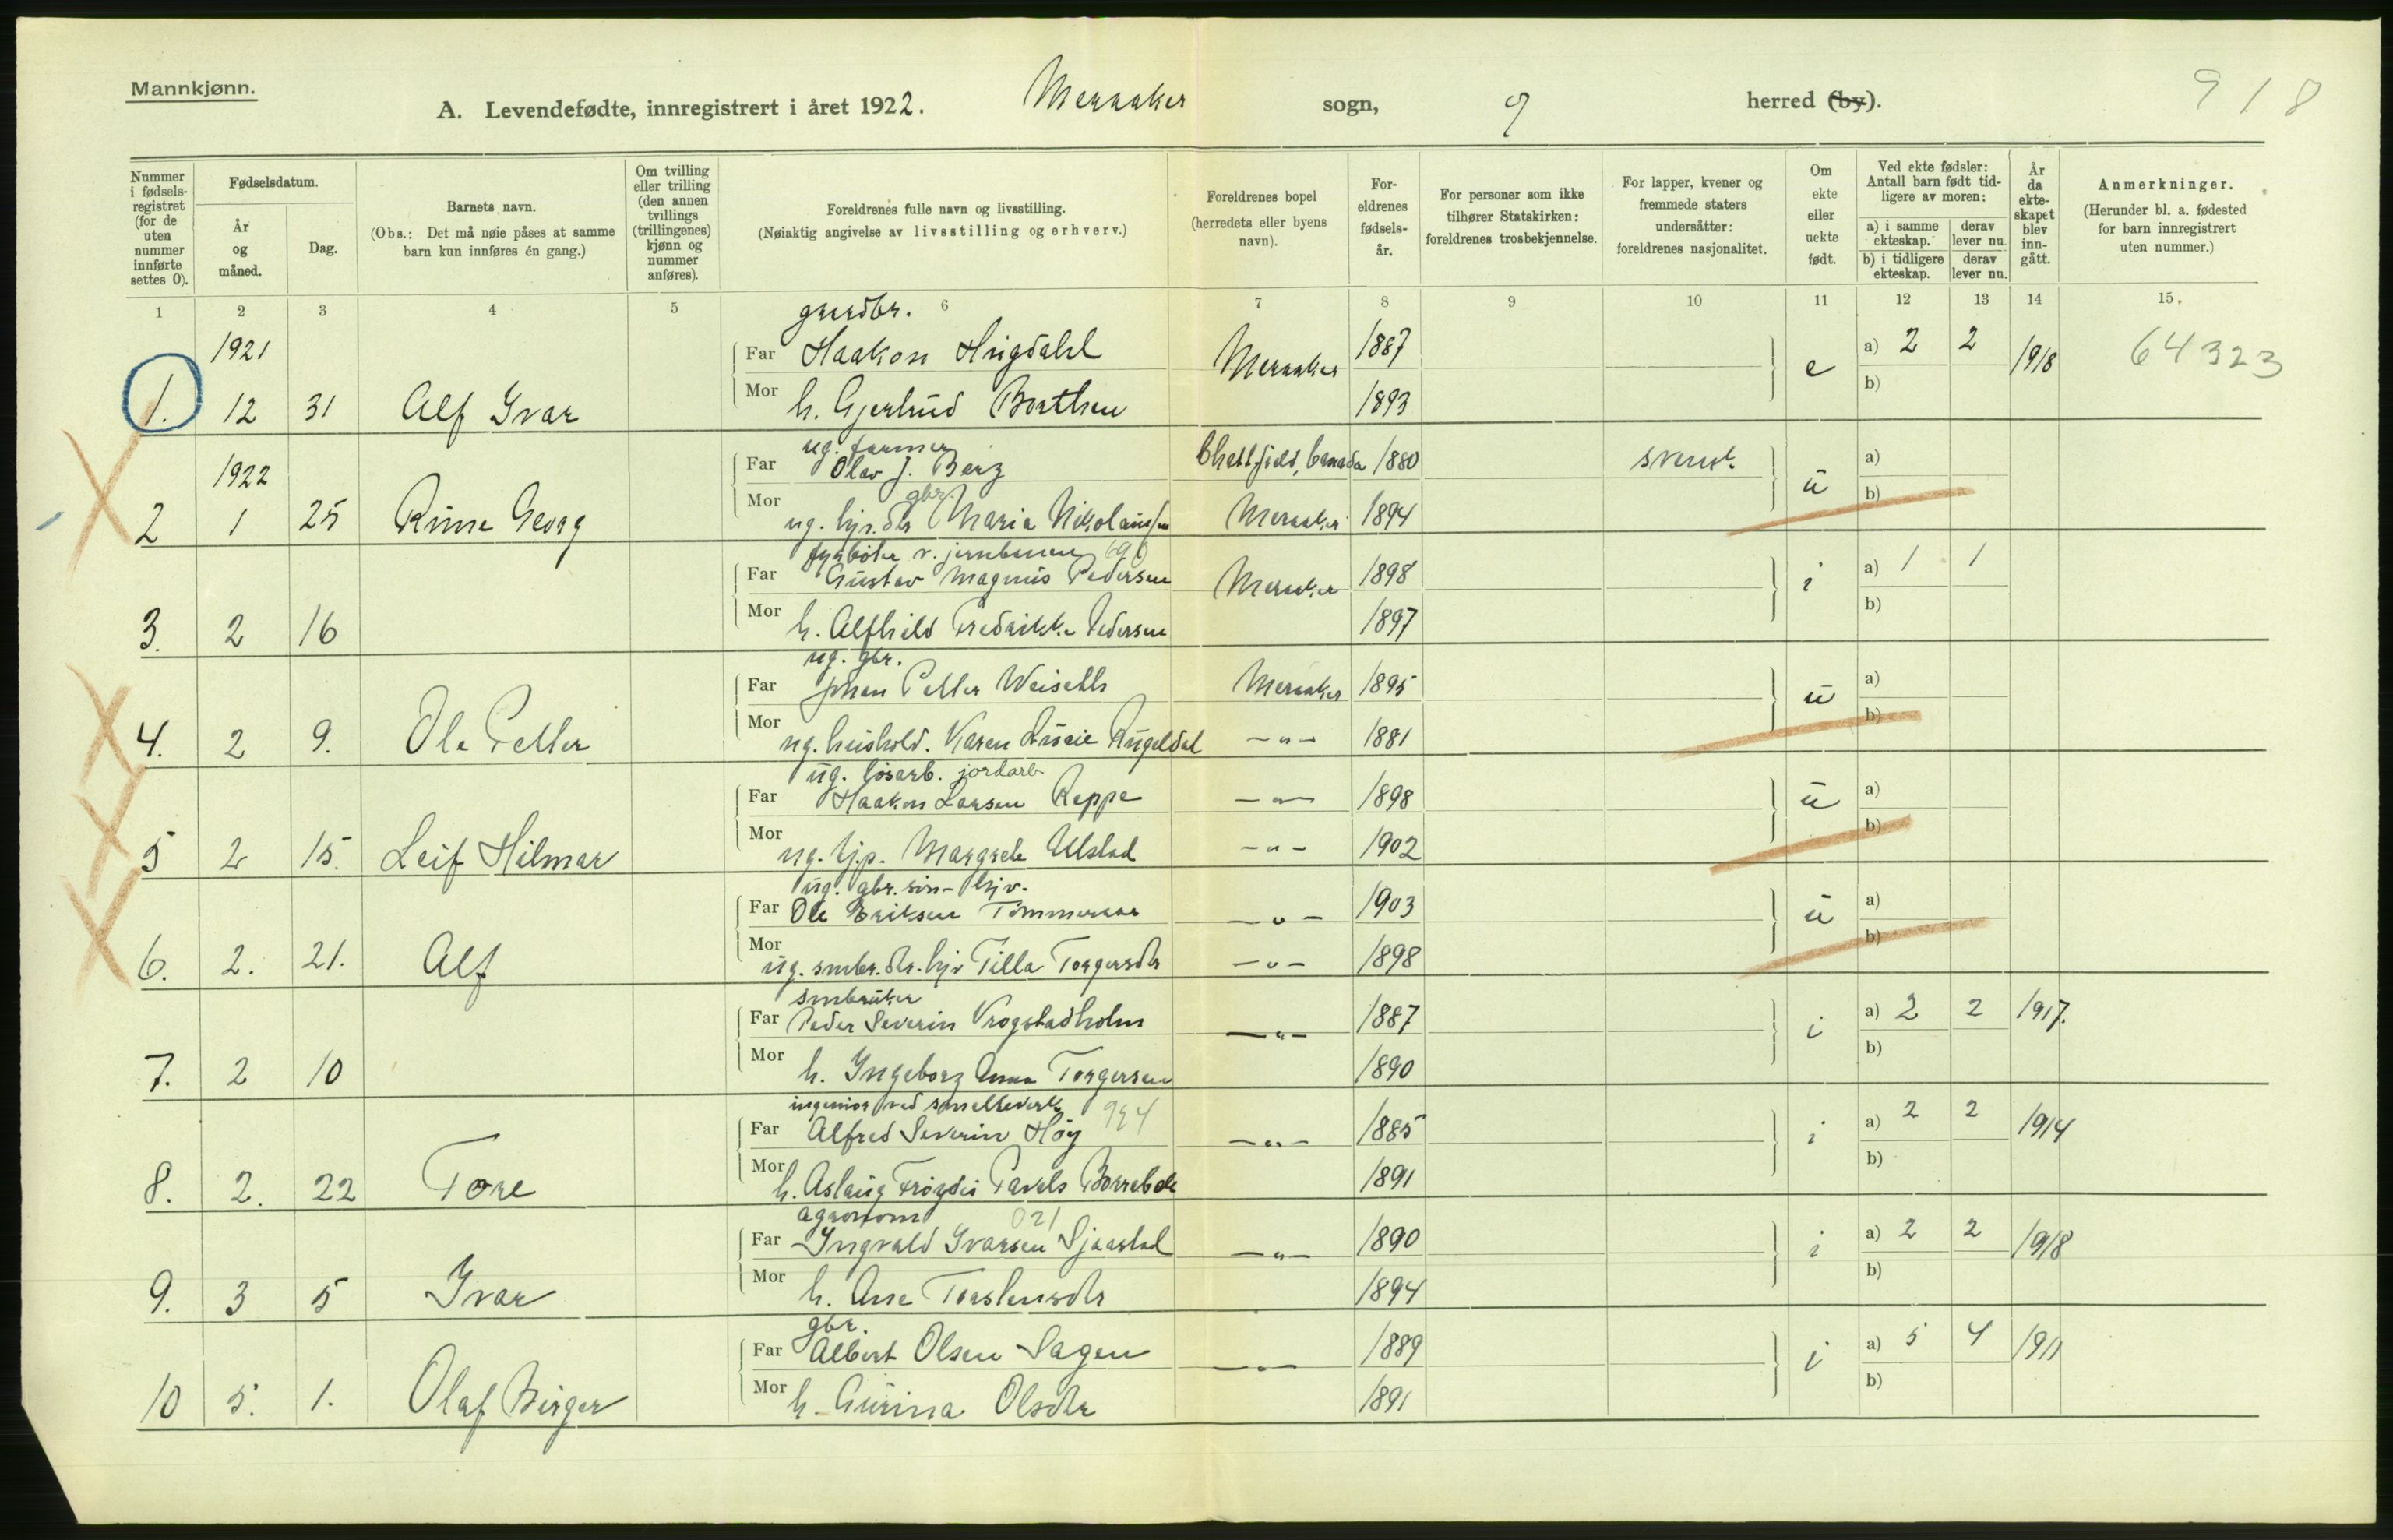 Mannkjønn.
A. Levendefødte, innregistrert i året 1922. Meraaker sogn, herred (by).
918
Nummer i fødsels-registret (for de uten nummer innførte settes 0).
Fødselsdatum.
År og måned.
Dag.
Barnets navn.
(Obs.: Det må nøie påses at samme barn kun innføres én gang.)
Om tvilling eller trilling (den annen tvillings (trillingenes) kjønn og nummer anføres).
Foreldrenes fulle navn og livsstilling.
(Nøiaktig angivelse av livsstilling og erhverv.)
Foreldrenes bopel
(herredets eller byens navn).
For-eldrenes fødsels-år.
For personer som ikke tilhører Statskirken: foreldrenes trosbekjennelse.
For lapper, kvener og fremmede staters undersåtter: foreldrenes nasjonalitet.
Om ekte eller uekte født.
Ved ekte fødsler: Antall barn født tid-ligere av moren:
a) i samme ekteskap. derav lever nu.
b) i tidligere ekteskap. derav lever nu.
År da ekte-skapet blev inn-gått.
Anmerkninger.
(Herunder bl. a. fødested for barn innregistrert uten nummer.)
1 2 3 4 5 6 7 8 9 10 11 12 13 14 15.
gaardbr.
1921 Far Haakon Hugdahl Meraaker 1887 e a) 2 2 1918 64323
1. 12 31 Alf Ivar Mor h. Gjertrud Borthen 1893 b)
ug. farmer
1922 Far Olav J. Berg Canada 1880 svensk ü a)
gbr.
2 1 25 Rune Georg Mor ug. hjv. dtr Maria Nikolausen Meraaker 1894 b)
fyrbøter v. jernbanen
Far Gustav Magnus Pedersen Meraaker 1898 i a) 1 1
3. 2 16 Mor h. Alfhild Fredrikke Pedersen 1897 b)
ug. gbr.
Far Johan Petter Meraaker 1895 ü a)
4. 2 9. Ole Petter Mor ug. hushold. Karen Rugeldal -"- 1881 b)
ug. løsarb. jordarb.
Far Haakon Larsen Reppe -"- 1898 ü a)
5 2 15. Leif Hilmar Mor ug. tjp. Margrete Ulstad -"- 1902 b)
ug. gbr. søn - hjv.
Far Ole Eriksen Tømmeraas -"- 1903 ü a)
6. 2. 21. Alf Mor ug. smbr. dtr. hjv Tilla Torgersdtr -"- 1898 b)
smbruker
Far Peder Severin Krogstadholm -"- 1887 i a) 2 2 1917.
7. 2 10 Mor h. Ingeborg Anna Torgersen 1890 b)
ingeniør ved smelteverk
Far Alfred Severin Høy -"- 1885 i a) 2 2 1914
8. 2. 22 Tore Mor h. Aslaug Pavels 1891 b)
agronom 021
Far Ingvald Ivarsen Sjaastad -"- 1890 i a) 2 2 1918
9. 3 5 Ivar Mor h. Ane Torstensdtr 1894 b)
gbr.
Far Albert Olsen Sagen -"- 1889 i a) 5 4 1911
10 5. 1. Olaf Birger Mor h. Gurina Olsdtr 1891 b)